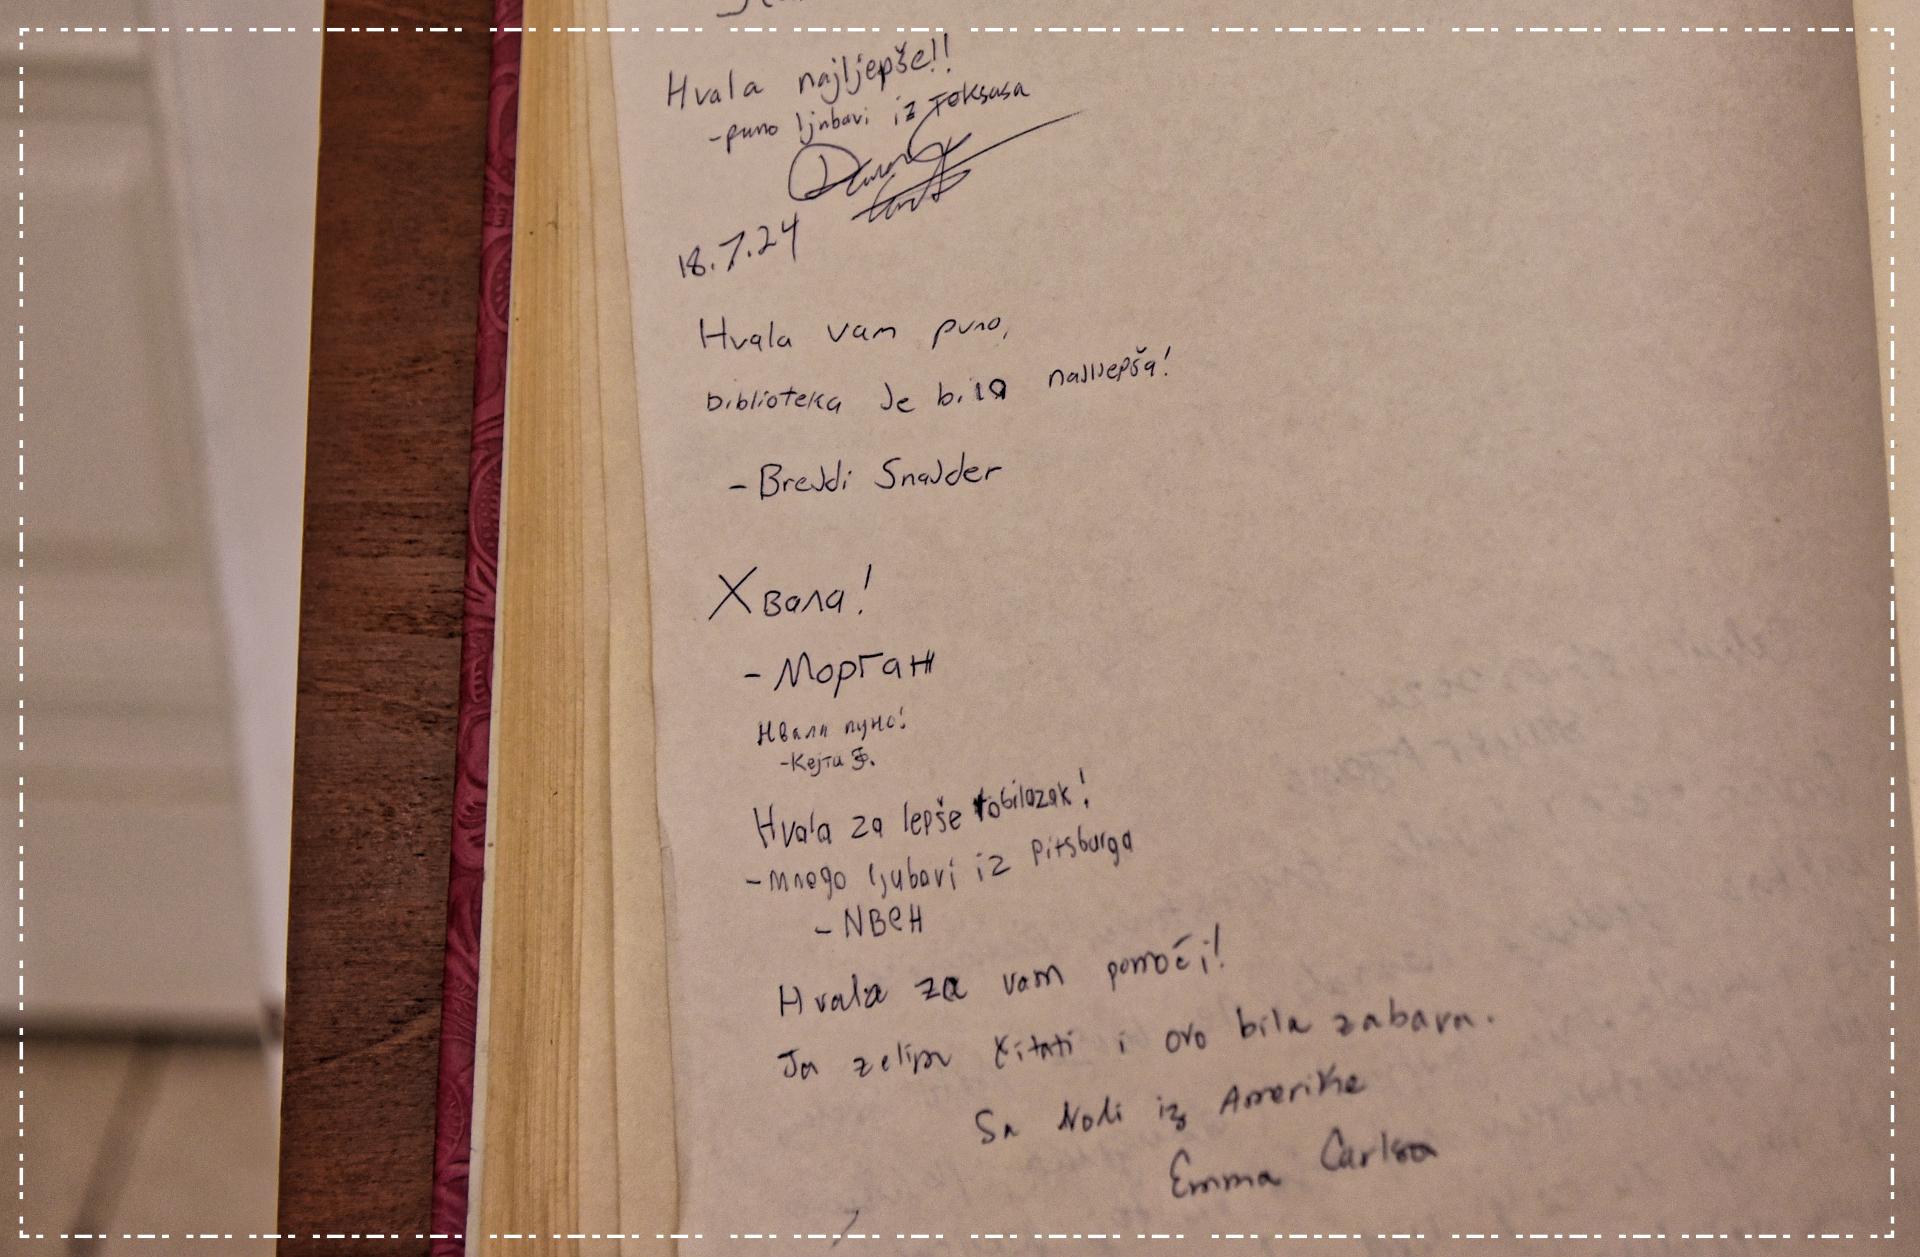 Hvala najljepše!!
-puno ljubavi iz Teksasa
18.7.24
Hvala vam puno,
biblioteka je bila najljepša!
- Brejdi Snajder
Хвала!
- Морган
Нвала пуно!
-Кејти
Hvala za lepše obilazak!
-mnogo ljubavi iz Pitsburga
- NBCH
Hvala za vam pomoći!
Ja zelim čitati i ovo bila zabava.
Sa iz Amerike
Emma Carlson